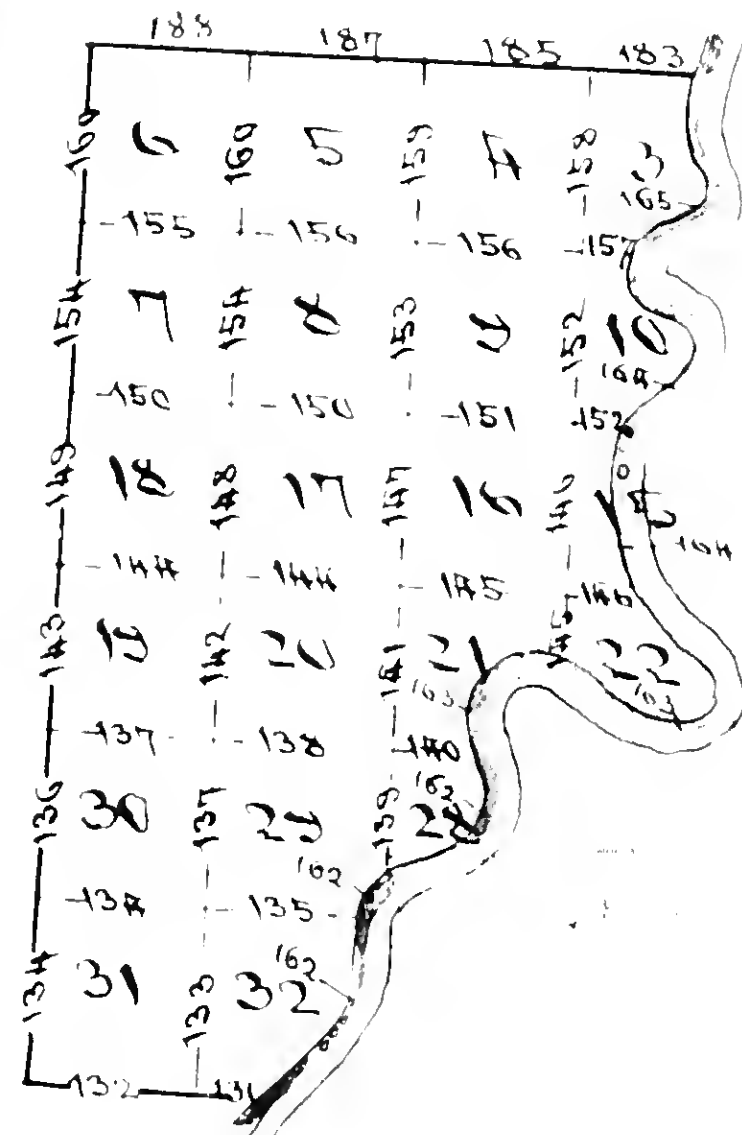 188 187 185 183
160 6 160 5 159 4 158 3
165
155 156 156 157
154 7 154 8 153 9 152 10
164
150 150 151 152
149 18 148 17 147 16 146
144 144 145 146 164
143 19 142 20 141 21 145 22
163 163
137 138 140
162
136 30 137 29 139 28
162
134 135
162
134 31 133 32
132 131